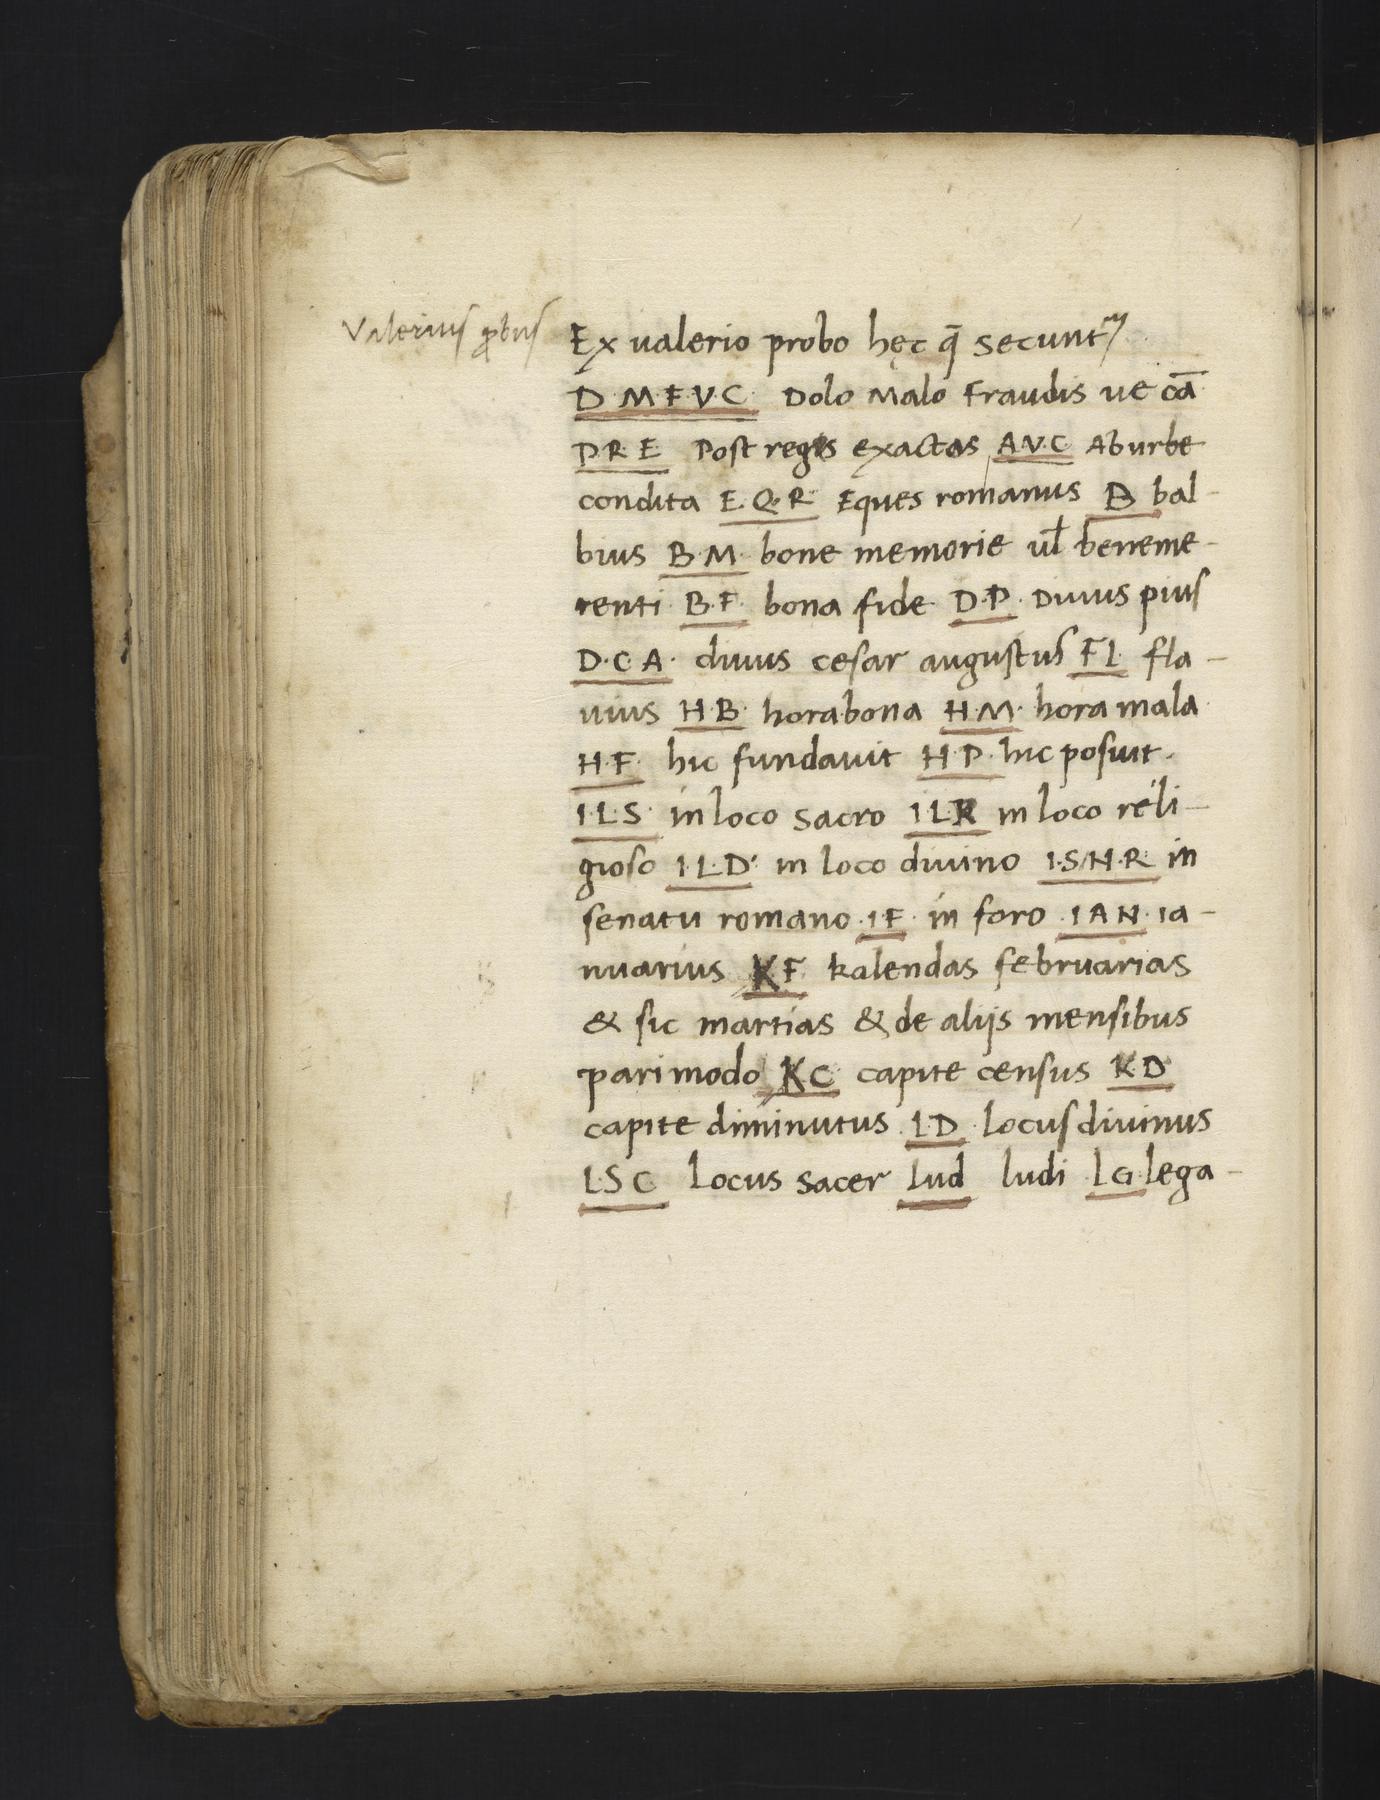 Valerius ꝓbus
Ex ualerio probo hęc q̄ secunt᷑
D·M·F·V·C· Dolo Malo Fraudis ue cā
P·R·E Post regis exactas A·V·C Ab urbe
condita E·Q·R· Eques romanus B bal-
bius B·M· bone memorie ul̄ beneme-
renti B·F· bona fide D·P· Diuus pius
D·C·A· diuus cesar augustus FL· fla-
uius H·B· hora bona H·M· hora mala
H·F· hic fundauit H·P· hic posuit·
I·L·S· in loco sacro I·L·R in loco reli-
gioso I·L·D· in loco diuino I·S·N·R· in
senatu romano ·I·F· in foro ·IAN· ia-
nuarius KF kalendas februarias
& sic martias & de alijs mensibus
pari modo KC capite census K·D·
capite diminutus L·D· locus diuinus
L·S·C· Locus sacer Lud ludi LG· lega-